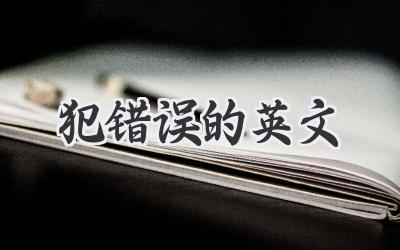 犯错误的英文